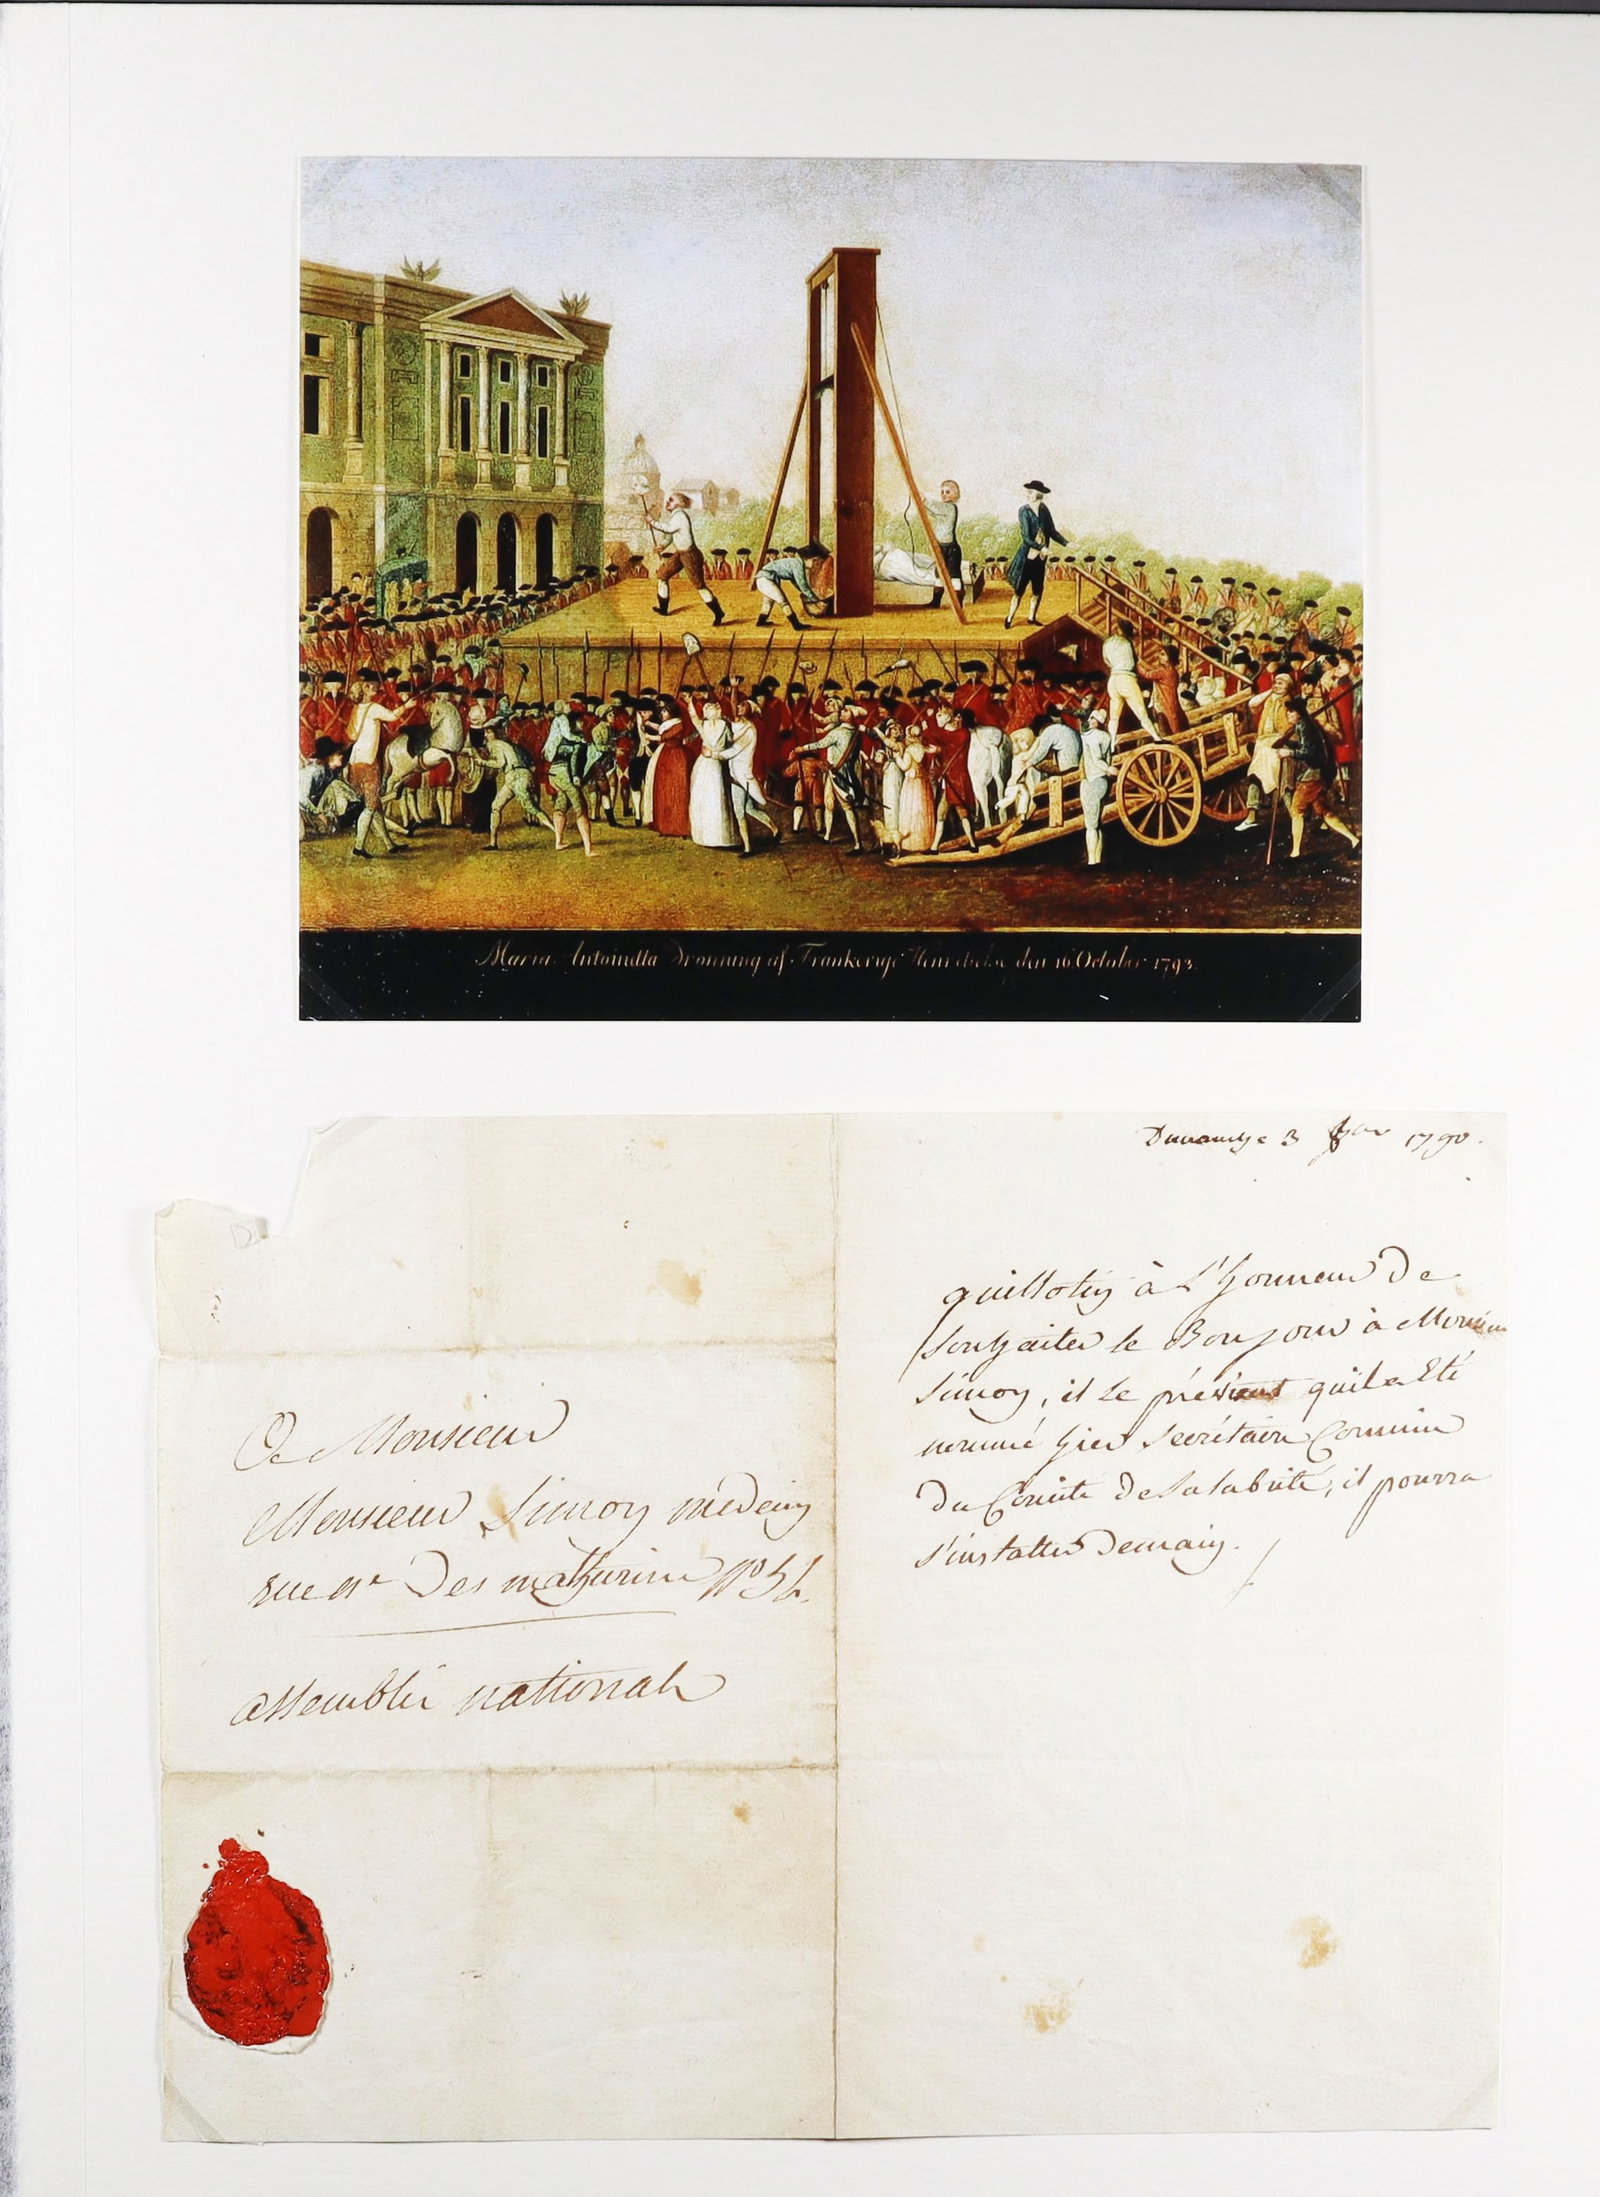 Maria Antoinetta Dronning af Frankerige Henrettelse den 16 October 1793.
3 1790.
guillotin à L'honneur De
souhaiter le Bonjour à Monsieur
Simon, il le prévient quil a Eté
nommé hier Secrétaire Commis
Du Comité De Salubrité, il pourra
s'installer Demain.
A Monsieur
Monsieur Simon médecin
rue n.e Des mathurins N°
assemblée nationale